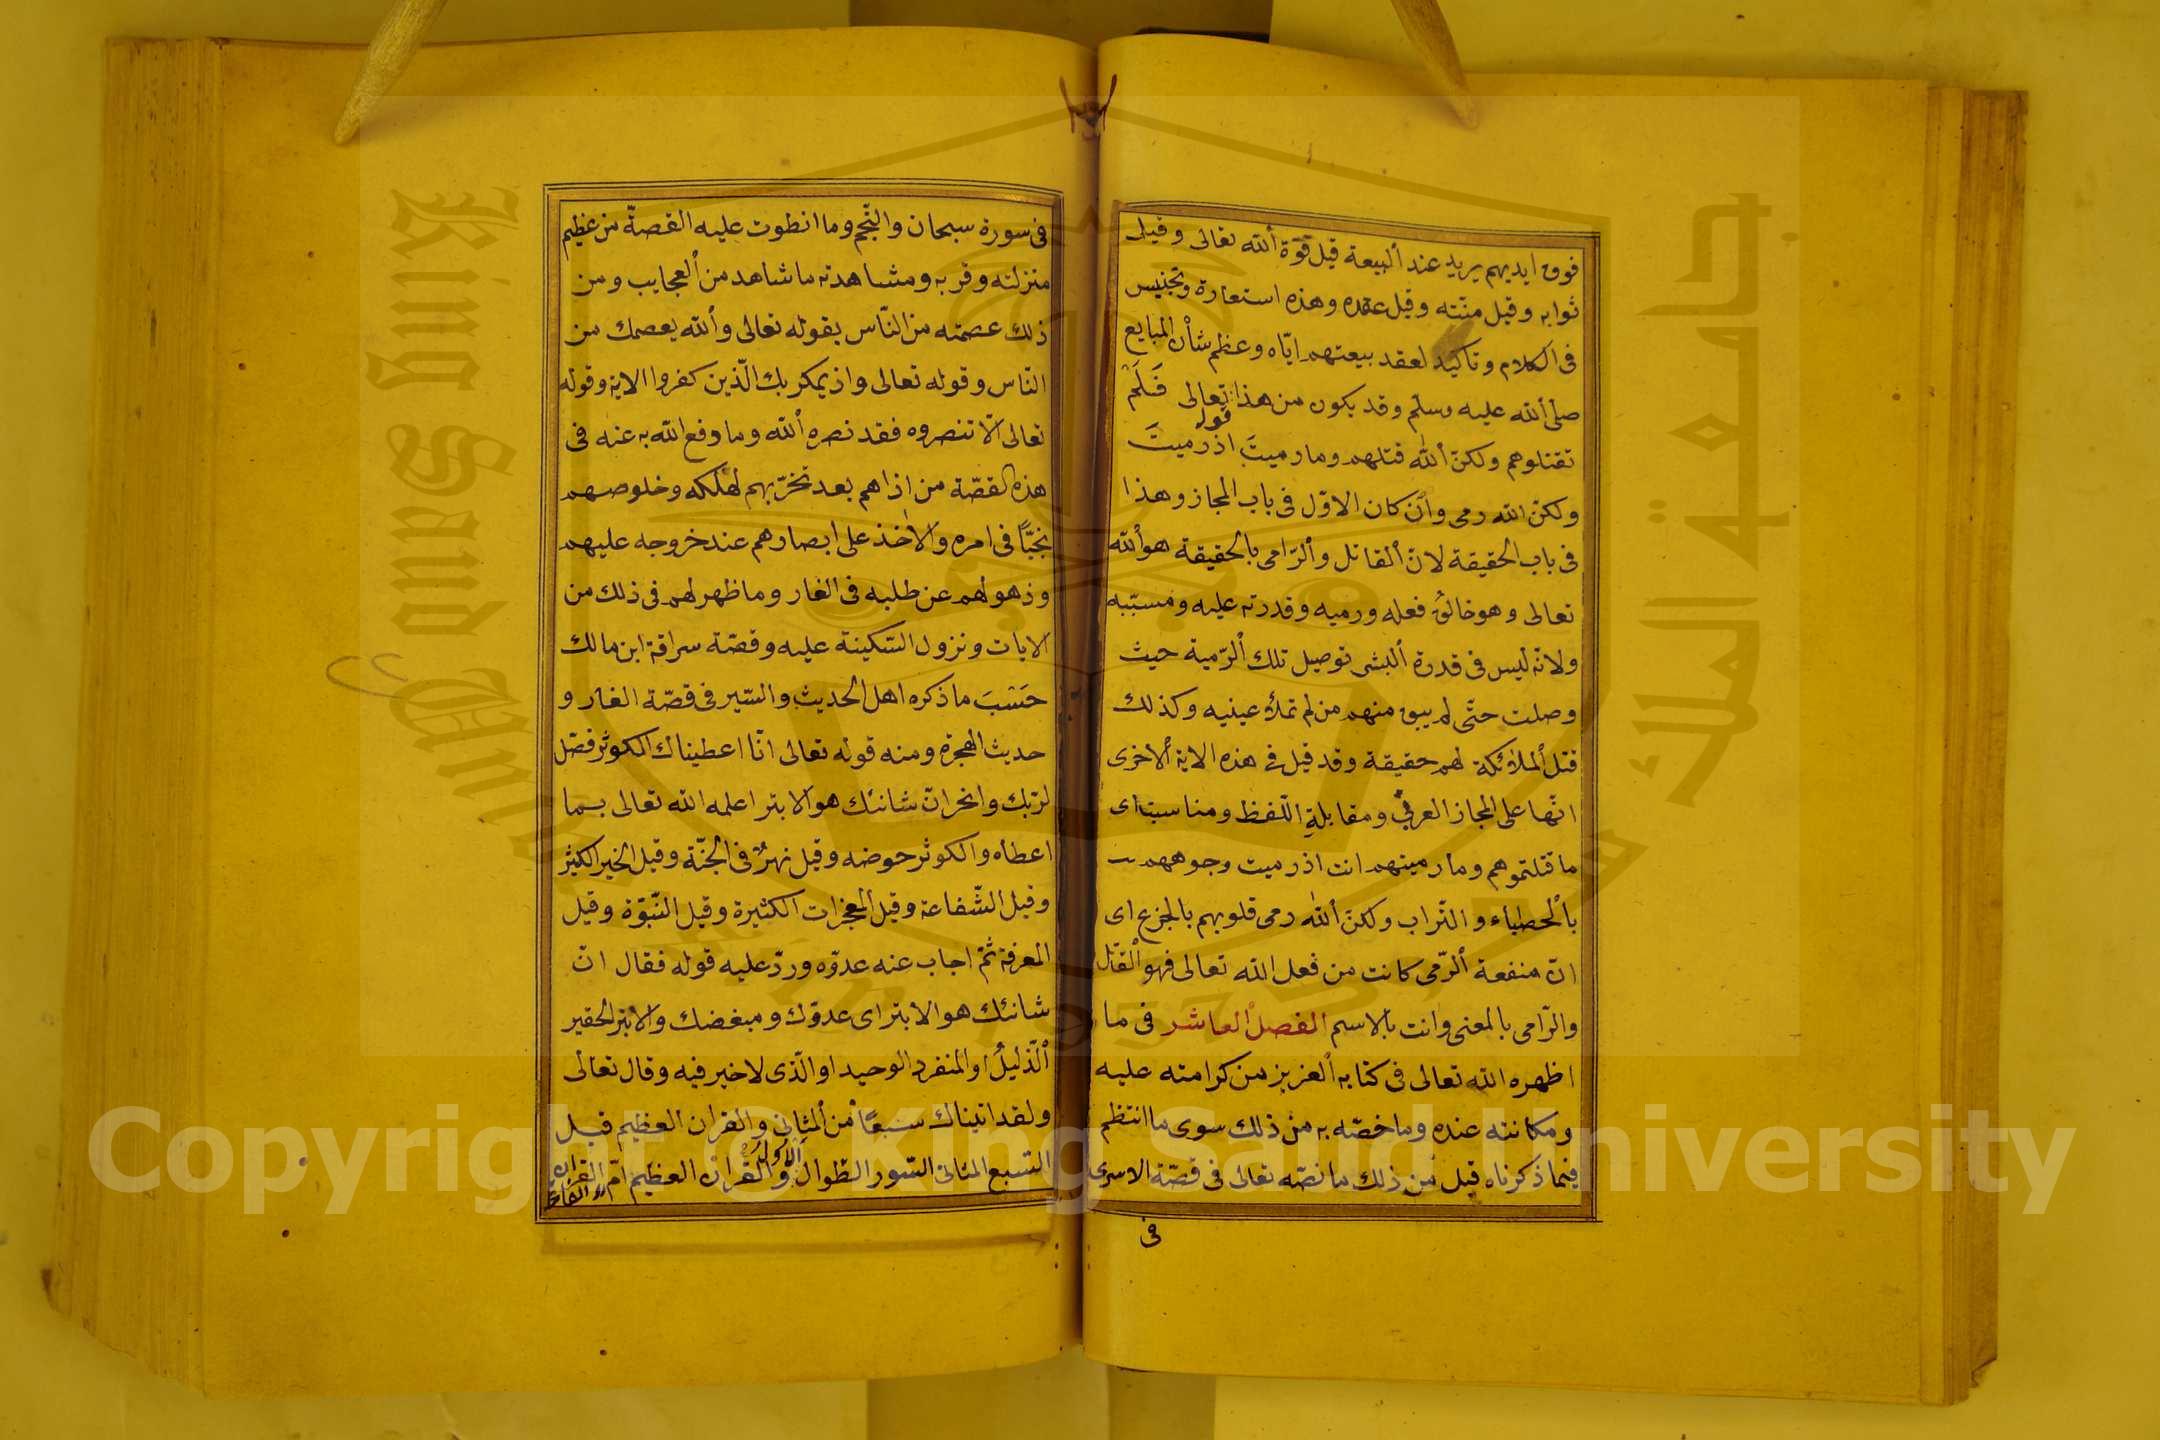 فوق ايديهم يريد عند ألبيعة قيل قوّة ألله تعالى وقيل
ثوابه وقيل منّته وقيل عقده وهذه استعارة وتجنيس
فى الكلام وتاكيد لعقد بيعتهم ايّاه وعظم شأن المبايع
صلى ألله عليه وسلّم وقد يكون من هذا قوله تعالى فَلَمْ
تقتلوهم ولكنّ ألله قتلهم وما رميتَ اذ رميتَ
ولكنّ الله رمى وأن كان الاوّل فى باب المجاز وهذا
فى باب الحقيقة لانّ ألقاتل وألرّامى بالحقيقة هو ألله
تعالى وهو خالقُ فعله ورميه وقدرته عليه ومسبّبه
ولانّه ليس فى قدرة ألبشر توصيل تلك ألرّمية حيث
وصلت حتّى لم يبق منهم من لم تملأ عينيه وكذلك
قتل ألملائكة لهم حقيقة وقد قيل فى هذه الاية ألاخرى
انّها على المجاز العرفىّ ومقابلةِ اللّفظ ومناسبته اى
ما قتلتموهم وما رميتهم انت اذ رميت وجوههم
بألحصباء والتّراب ولكنّ ألله رمى قلوبهم بالجزع اى
انّ منفعة ألرّمى كانت من فعل الله تعالى فهو ألقاتل
والرّامى بالمعنى وانت بالاسم الفصل ألعاشر فى ما
اظهره الله تعالى فى كتابه ألعزيز من كرامته عليه
ومكانته عنده وما خصّه به من ذلك سوى ما انتظم
فيما ذكرناه قبل من ذلك ما نصّه تعالى فى قصّة الاسرى
فى
فى سورة سبحان والنّجم وما انطوت عليه القصّة من عظيم
منزلته وقربه ومشاهدته ما شاهد من ألعجايب ومن
ذلك عصمته من النّاس بقوله تعالى وألله يعصمك من
النّاس وقوله تعالى واذ يمكر بك الّذين كفروا الاية وقوله
تعالى الّا تنصروه فقد نصره ألله وما دفع الله به عنه فى
هذه القصّة من اذاهم بعد تحزّبهم لهلكه وخلوصهم
نجيّا فى امره والاخذ على ابصارهم عند خروجه عليهم
وذهولهم عن طلبه فى الغار وما ظهر لهم فى ذلك من
الايات ونزول السّكينة عليه وقصّة سراقة ابن مالك
حَسْبَ ما ذكره اهل الحديث والسّير فى قصّة الغار و
حديث الهجرة ومنه قوله تعالى انّا اعطيناك الكوثر فصّل
لربّك وانحر انّ شانئك هو الابتر اعلمه الله تعالى بما
اعطاه والكوثر حوضه وقيل نهرٌ فى الجنّة وقيل الخير الكثير
وقيل الشّفاعة وقيل ألمعجزات الكثيرة وقيل النّبوّة وقيل
المعرفة ثمّ اجاب عنه عدوّه وردّ عليه قوله فقال انّ
شانئك هو الابتر اى عدوّك ومبغضك والابتر الحقير
ألذّليل او المنفرد الوحيد او الّذى لا خير فيه وقال تعالى
ولقد اتيناك سبعًا من ألمثانى والقران العظيم قيل
السّبع المثانى السّور الطّوال الاولى والقران العظيم امّ القران
جامعة الملك سعود
King Saud University
1957
Copyright © King Saud University